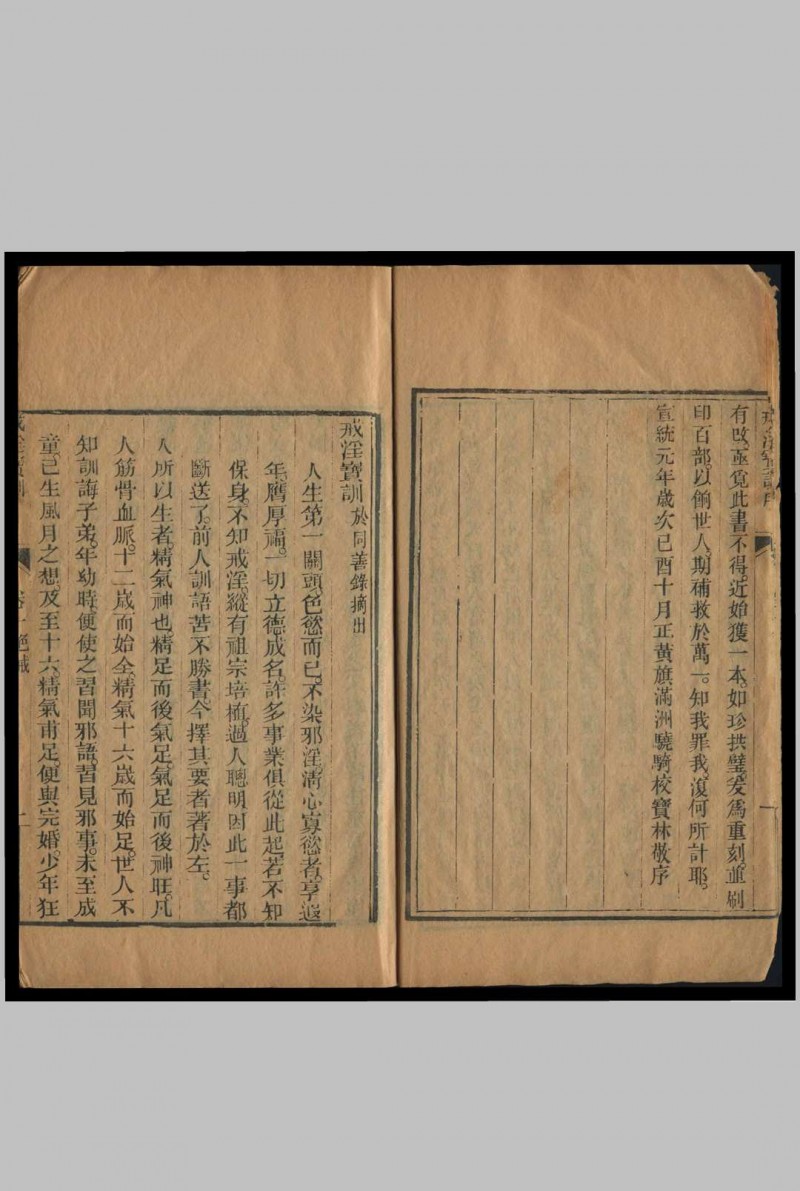 有改。亟覓此書不得。近始獲一本。如珍拱璧。爰爲重刻。並刷
印百部。以餉世人。期補救於萬一。知我罪我。復何所計耶。
宣統元年歲次己酉十月正黃旗滿洲驍騎校寶林敬序
戒淫寶訓 於同善錄摘出
人生第一關頭。色慾而已。不染邪淫。清心寡慾者。享遐
年。膺厚福。一切立德成名。許多事業。俱從此起。若不知
保身。不知戒淫。縱有祖宗培植。過人聰明。因此一事都
斷送了。前人訓語。苦不勝書。今擇其要者著於左。
人所以生者。精氣神也。精足而後氣足。氣足而後神旺。凡
人筋骨血脈。十二歲而始全。精氣十六歲而始足。世人不
知訓誨子弟。年幼時。便使之習聞邪語。習見邪事。未至成
童。已生風月之想。及至十六。精氣甫足。便與完婚。少年狂